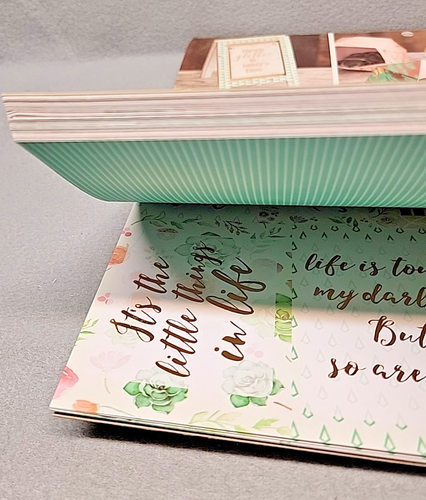 It's the
little things
in life
life is tou
my darl
But
so are